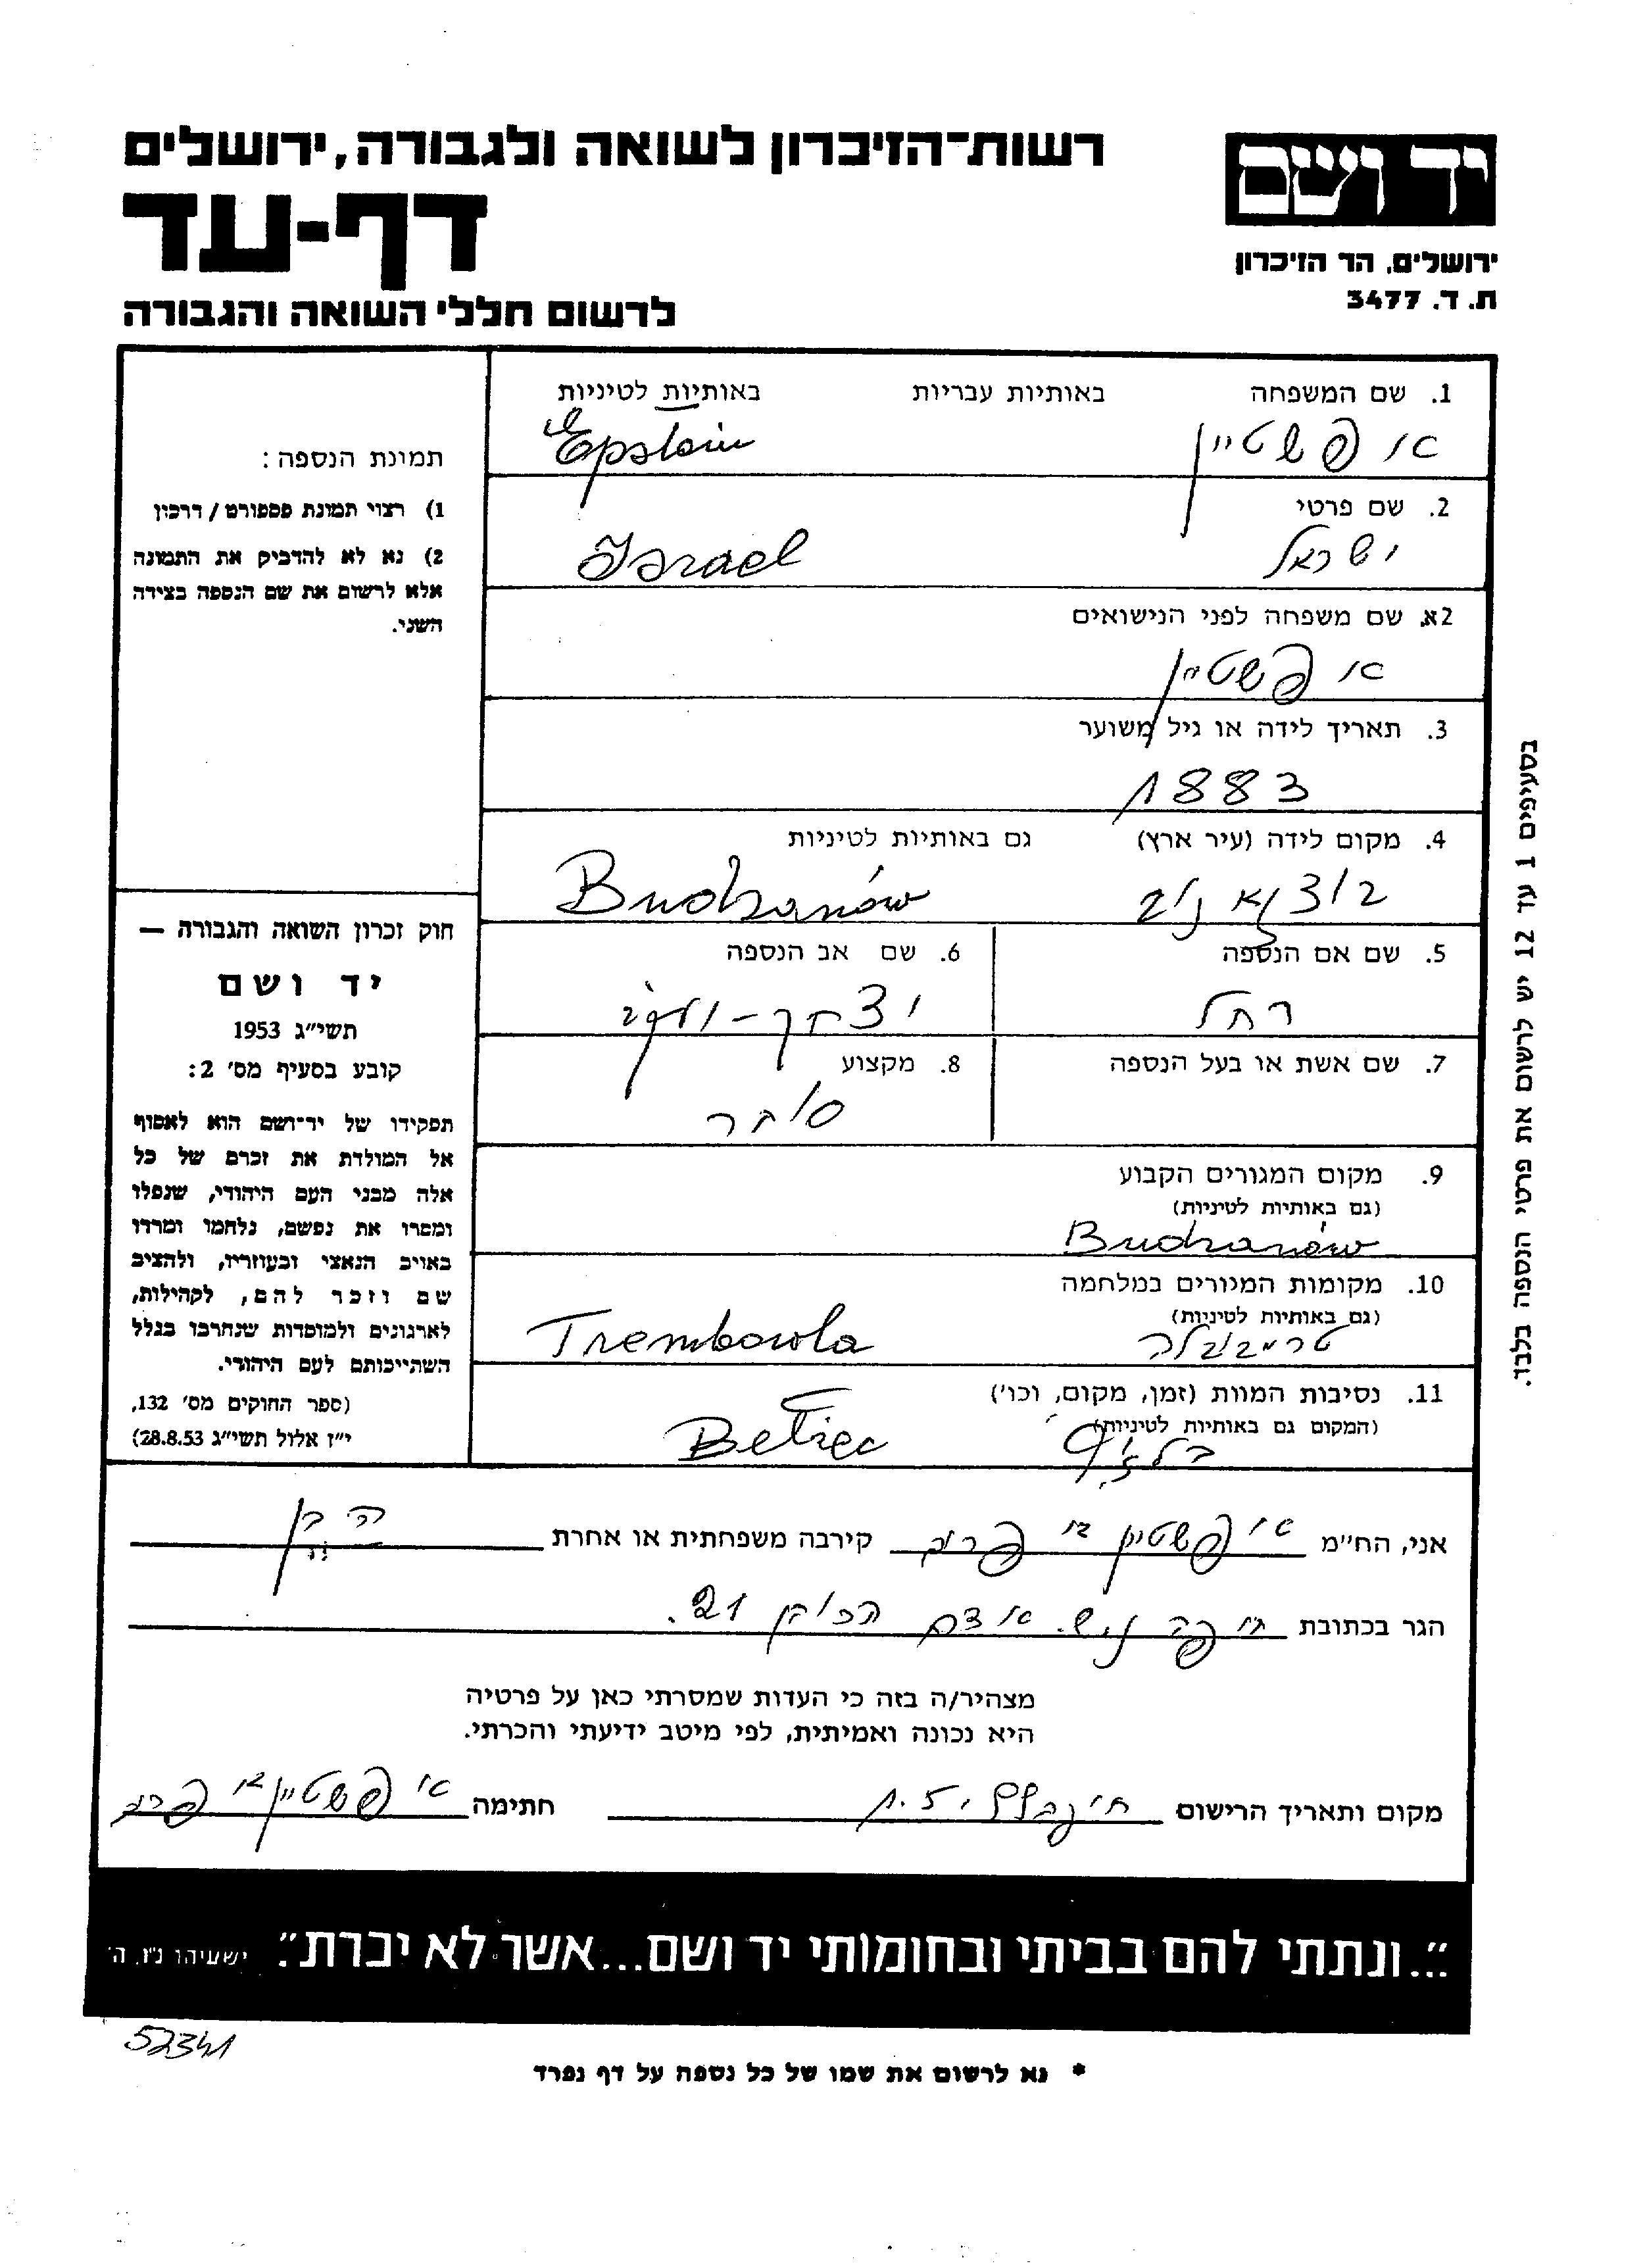 רשות־הזיכרון לשואה ולגבורה, ירושלים
יד ושם
דף-עד
ירושלים, הר הזיכרון
ת. ד. 3477
לרשום חללי השואה והגבורה
1. שם המשפחה באותיות עבריות באותיות לטיניות
אופשטיין Epstein
2. שם פרטי
ישראל Israel
2א. שם משפחה לפני הנישואים
אופשטיין
3. תאריך לידה או גיל משוער
1883
4. מקום לידה (עיר ארץ) גם באותיות לטיניות
Budzanów
5. שם אם הנספה
רחל
6. שם אב הנספה
יצחק-יעקב
7. שם אשת או בעל הנספה
8. מקצוע
סוחר
9. מקום המגורים הקבוע
(גם באותיות לטיניות)
Budzanów
10. מקומות המגורים במלחמה
(גם באותיות לטיניות)
טרימבובלה Trembowla
11. נסיבות המוות (זמן, מקום, וכו')
(המקום גם באותיות לטיניות)
Bełżec
תמונת הנספה:
1) רצוי תמונת פספורט / דרכון
2) נא לא להדביק את התמונה
אלא לרשום את שם הנספה בצידה
השני.
חוק זכרון השואה והגבורה —
יד ושם
תשי"ג 1953
קובע בסעיף מס' 2:
תפקידו של יד־ושם הוא לאסוף
אל המולדת את זכרם של כל
אלה מבני העם היהודי, שנפלו
ומסרו את נפשם, נלחמו ומרדו
באויב הנאצי ובעוזריו, ולהציב
שם וזכר להם, לקהילות,
לארגונים ולמוסדות שנחרבו בגלל
השתייכותם לעם היהודי.
(ספר החוקים מס' 132,
י"ז אלול תשי"ג 28.8.53)
בסעיפים 1 עד 12 יש לרשום את פרטי הנספה בלבד.
אני, הח"מ אופשטיין קירבה משפחתית או אחרת
הגר בכתובת חיפה 21.
מצהיר/ה בזה כי העדות שמסרתי כאן על פרטיה
היא נכונה ואמיתית, לפי מיטב ידיעתי והכרתי.
מקום ותאריך הרישום חתימה אופשטיין
"...ונתתי להם בביתי ובחומותי יד ושם...אשר לא יכרת". ישעיהו נ"ו, ה'
52341
* נא לרשום את שמו של כל נספה על דף נפרד